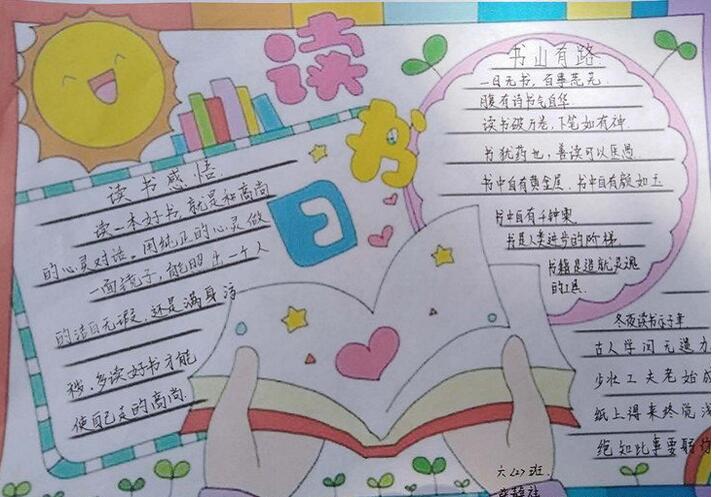 读书日
读书感悟
读一本好书,就是和高尚
的心灵对话。用纯正的心灵做
一面镜子,能照出一个人
的洁白无瑕,还是满身污
秽,多读好书才能
使自己走的高尚.
书山有路
一日无书,百事荒芜.
腹有诗书气自华
读书破万卷,下笔如有神
书犹药也,善读可以医愚
书中自有黄金屋,书中自有颜如玉
书中自有千钟粟
书是人类进步的阶梯
书籍是造就灵魂
的工具.
冬夜读书示子聿
古人学问无遗力
少壮工夫老始成
纸上得来终觉浅
绝知此事要躬行
六(2)班